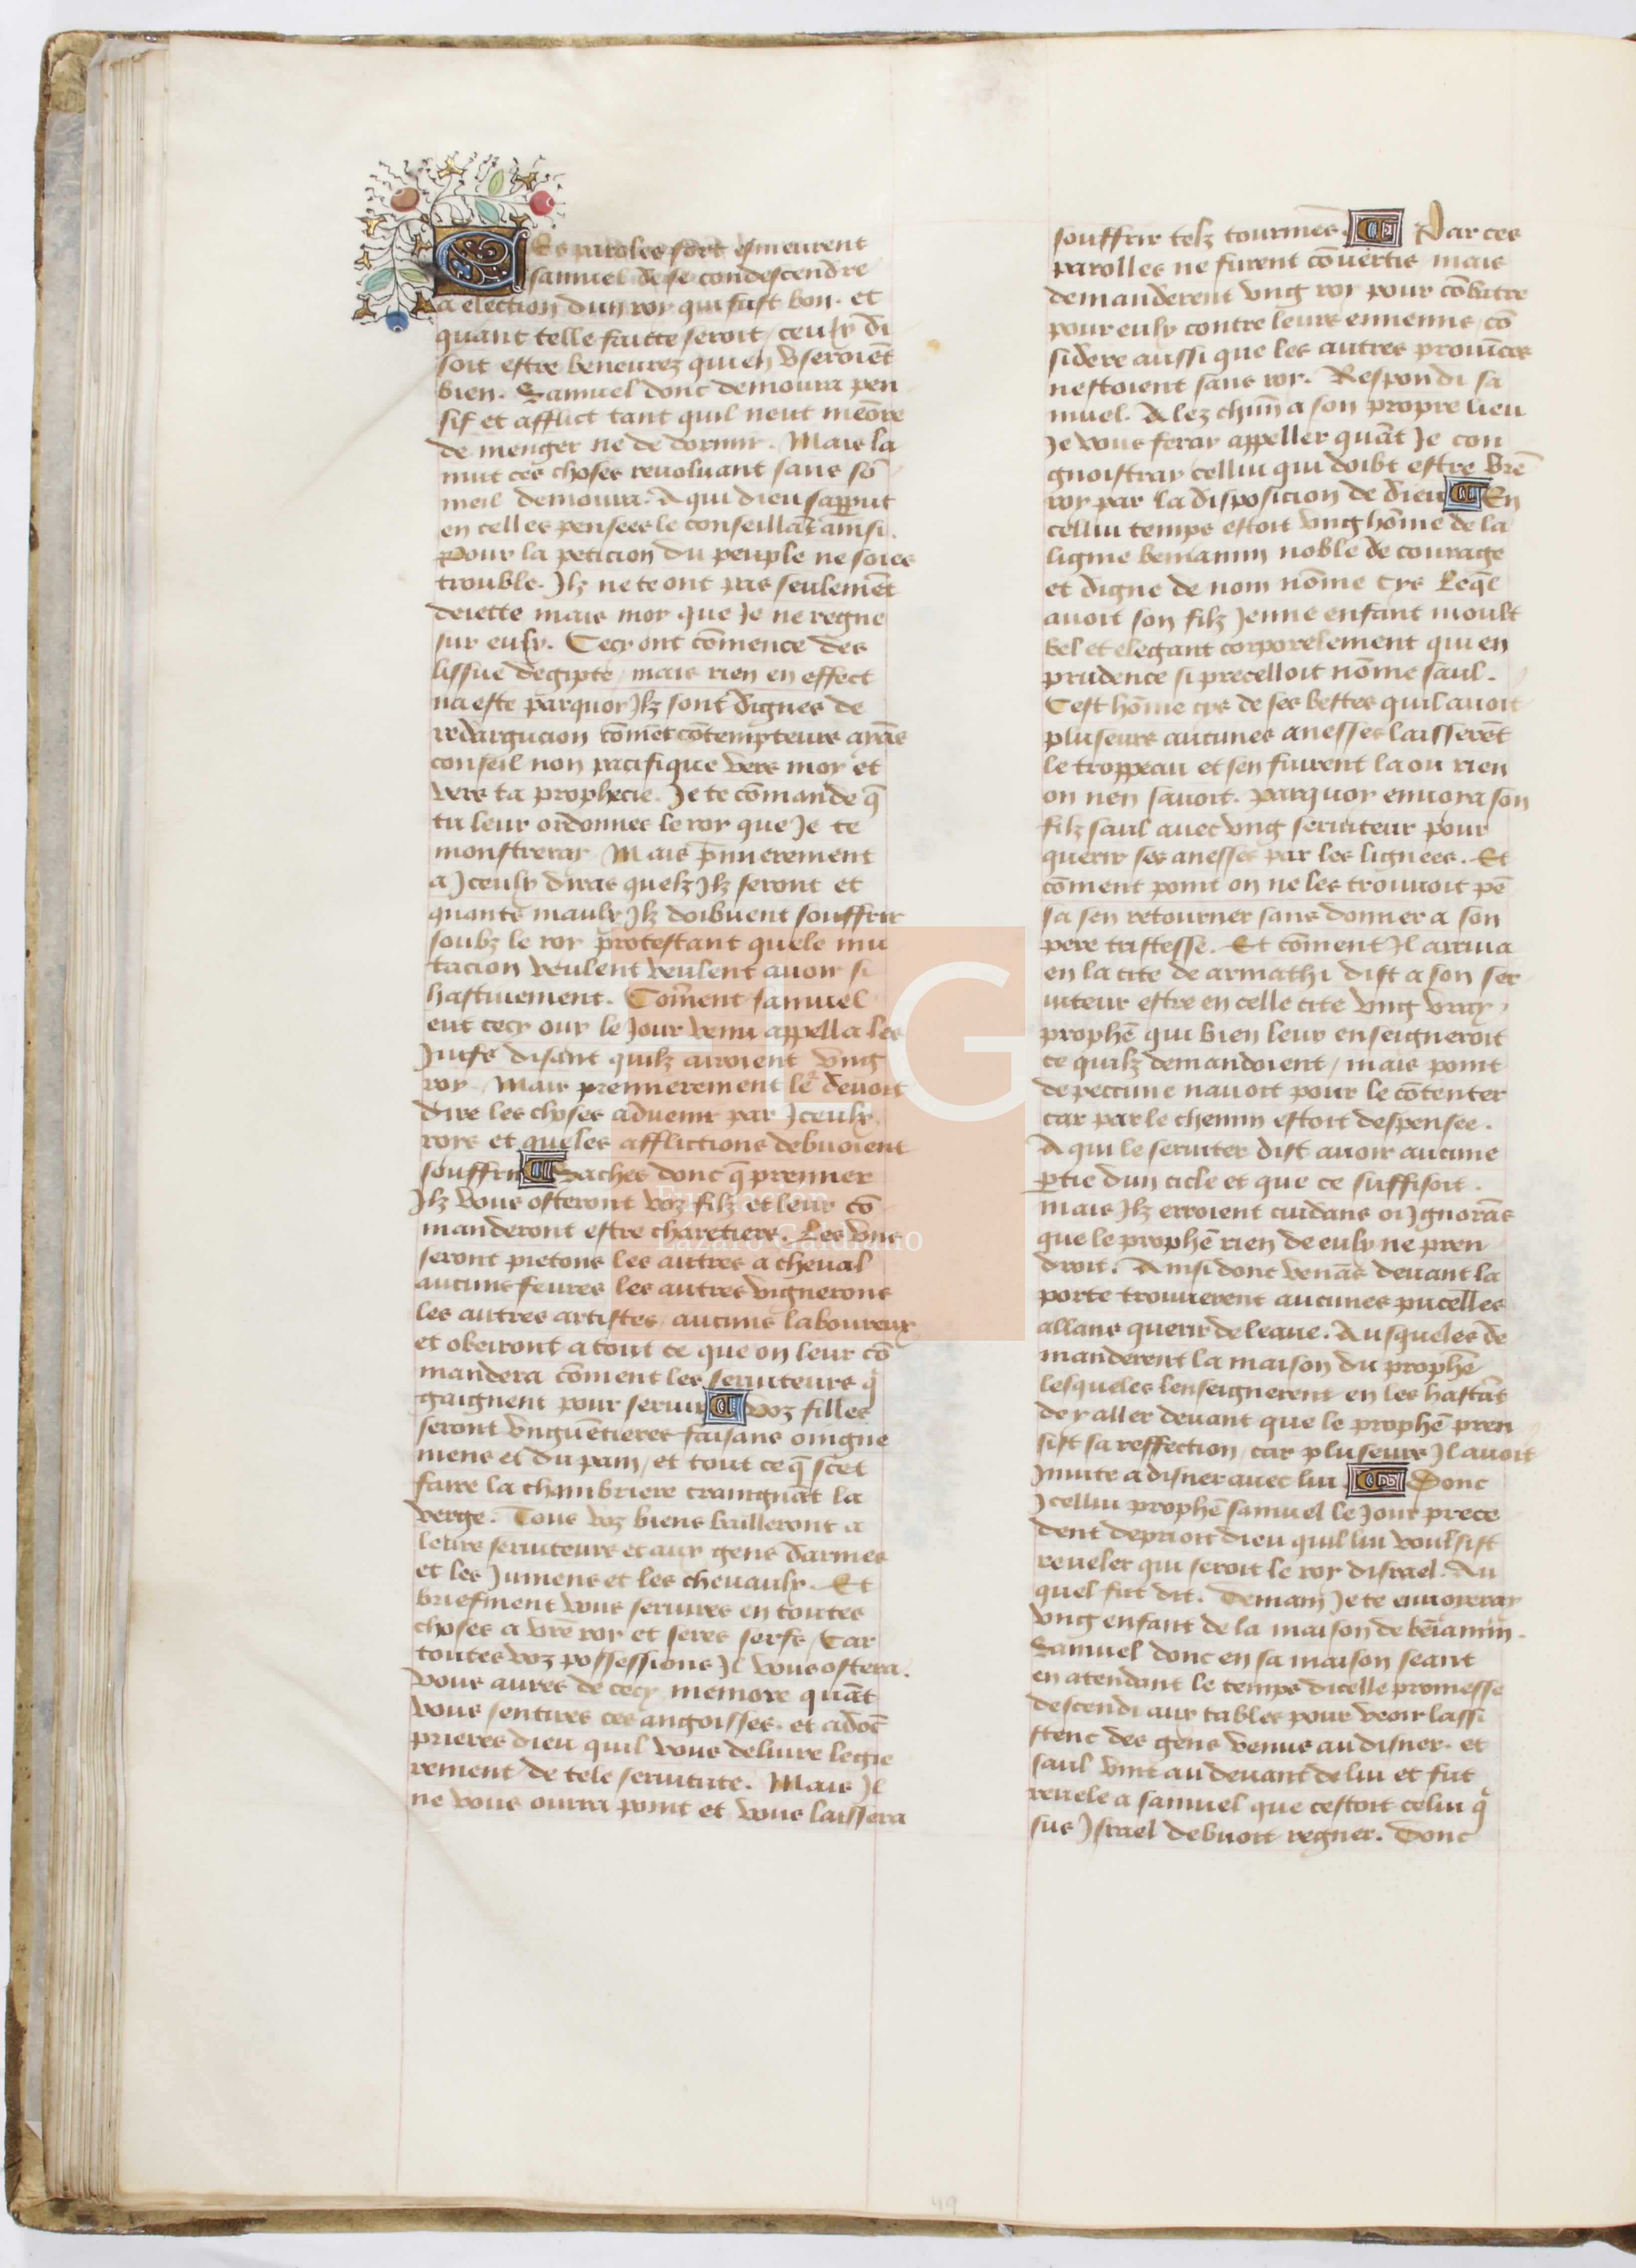 Ces paroles fort esmeurent
samuel de se condescendre
a election dun roy qui fust bon. et
quant telle faicte seroit / ceulx di
soit estre beneurez qui en useroiēt
bien. Samuel donc demoura pen
sif et afflict tant quil neut meōre
de menger ne de dormir. Mais la
nuit ces choses revoluant sans sō
meil demoura. A qui dieu sapparut
en celles pensees le conseillāt ainsi.
Pour la peticion du peuple ne soies
trouble. Ilz ne te ont pas seulemēt
deiette mais moy que Je ne regne
sur eulx. Cecy ont cōmence des
lissue degipte / mais rien en effect
na este parquoy Ilz sont dignes de
redargucion cōmēt cōtempteurs ayās
conseil non pacifique vers moy et
vers ta prophecie. Je te cōmande q̄
tu leur ordonnes le roy que Je te
monstreray Mais p̄mierement
a Jceulx diras quelz Ilz seront et
quants maulx Ilz doibuent souffrir
soubz le roy protestant quele mu
tacion veulent veulent avoir si
hastivement. Cōment samuel
eut cecy ouy le Jour venu appella les
Juifs disant quilz auroient vng
roy. Mais premierement le devoit
dire les choses advenir par Jceulx
roys et queles afflictions debuoient
souffrir Saches donc q̄ premier
Ilz vous osteront voz filz et leur cō
manderont estre charetiers. Les vns
seront pietons les autres a cheval
aucuns feures les autres vignerons
les autres artistes / aucuns laboureux
et obeiront a tout ce que on leur cō
mandera cōment les seruiteurs q̄
gaignent pour seruir Voz filles
seront vnguētieres faisans oingne
mens et du pain / et tout ce q̄ scet
faire la chambriere craingnāt la
verge. Tous voz biens bailleront a
leurs seruiteurs et aux gens darmes
et les Jumens et les chevaulx. Et
briefment vous seruires en toutes
choses a vrē roy et seres serfs / Car
toutes voz possessions Il vous ostera.
Vous aures de cecy memore quāt
vous sentires ces angoisses. et adōc
prieres dieu quil vous delivre legie
rement de tele seruitute. Mais Il
ne vous ourra point et vous laissera
souffrir telz tourmēs. Par ces
parolles ne furent cōuertis mais
demanderent vng roy pour cōbatre
pour eulx contre leurs ennemis cō
sidere aussi que les autres prouīces
nestoient sans roy. Respondi sa
muel. Alez chūn a son propre lieu
Je vous feray appeller quāt Je con
gnoistray celluy qui doibt estre vrē
roy par la disposicion de dieu En
cellui temps estoit vng hōme de la
ligne beniamin noble de courage
et digne de nom nōme cys Leq̄l
avoit son filz Jenne enfant moult
bel et elegant corporelement qui en
prudence si precelloit nōme saul.
Cest hōme cys de ses bestes quil avoit
pluseurs aucunes anesses laisserēt
le troppeau et sen fuirent la ou rien
on nen savoit. parquoy envoia son
filz saul avec vng seruiteur pour
querir ses anesses par les lignees. Et
cōment point on ne les trouuoit pē
sa sen retourner sans donner a son
pere tristesse. Et cōment Il arriua
en la cite de armathi dist a son ser
uiteur estre en celle cite vng vray
prophē qui bien leur enseigneroit
ce quilz demandoient / mais point
de peccune navoit pour le cōtenter
car par le chemin estoit despensee.
A qui le seruiter dist avoir aucune
ptie dun cicle et que ce suffisoit.
mais Ilz erroient cuidans ou Jgnorās
que le prophē rien de eulx ne pren
droit. Ainsi donc venās devant la
porte trouuerent aucunes pucelles
allans querir de leaue. Ausqueles de
manderent la maison du prophē
lesqueles lenseignerent en les hastās
de y aller devant que le prophē pren
sist sa reffection / car pluseurs Il avoit
Jnuite a disner avec lui Donc
Jcellui prophē samuel le Jour prece
dent deprioit dieu quil lui voulsist
reueler qui seroit le roy disrael. Au
quel fut dit. Demain Je te envoieray
vng enfant de la maison de bēiamin.
Samuel donc en sa maison seant
en atendant le temps dicelle promesse
descendi aux tables pour veoir lassi
stenc des gens venus au disner. et
saul vint au devant de lui et fut
revele a samuel que cestoit celui q̄
sus Israel debuoit regner. Donc
49
LG
Fundación
Lázaro Galdiano